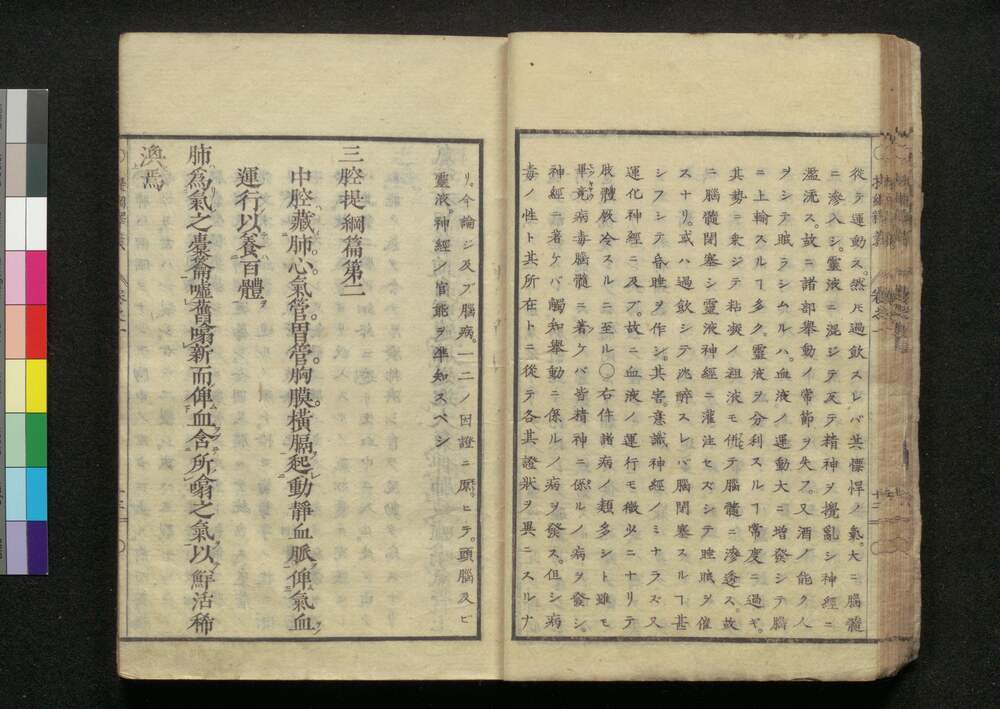 從テ運動ス。然ルニ過飲スレバ其慓悍ノ氣。大ニ腦髓
ニ滲入シ。靈液ニ混ジテ反テ精神ヲ攪亂シ神經ニ
濫流ス。故ニ諸部擧動ノ常節ヲ失フ。又酒ノ能ク人
ヲシテ眠ラシムルハ。血液ノ運動大ニ增發シテ腦
ニ上輸スルヿ多ク。靈液ヲ分利スルヿ常度ニ過ギ。
其勢ニ乘ジテ粘凝ノ粗液モ從テ腦髓ニ滲透ス。故
ニ腦髓閉塞シ靈液神經ニ灌注セズシテ睡眠ヲ催
スナリ。或ハ過飲シテ沈醉スレバ腦閉塞スルヿ甚
シフシテ昏睡ヲ作シ。其害意識神經ノミナラズ又
運化神經ニ及ブ。故ニ血液ノ運行モ微少ニナリテ
肢體厥冷スルニ至ル〇右件諸病ノ類多シト雖モ
畢竟病毒腦髓ニ著ケバ皆精神ニ係ルノ病ヲ發シ。
神經ニ著ケバ觸知擧動ニ係ルノ病ヲ發ス。但シ病
毒ノ性ト其所在トニ從テ各其證狀ヲ異ニスルナ
リ。今論ジ及ブ腦病。一二ノ因證ニ原ヒテ。頭腦及ビ
靈液。神經ノ官能ヲ準知スベシ
三腔提綱篇第二
中腔藏肺。心。氣管。胃管。胸膜。橫膈。起動靜血脈。俾氣血
運行以養百體
肺爲氣之橐籥。噓舊噏新而俾血含所噏之氣以鮮活稀
渙焉